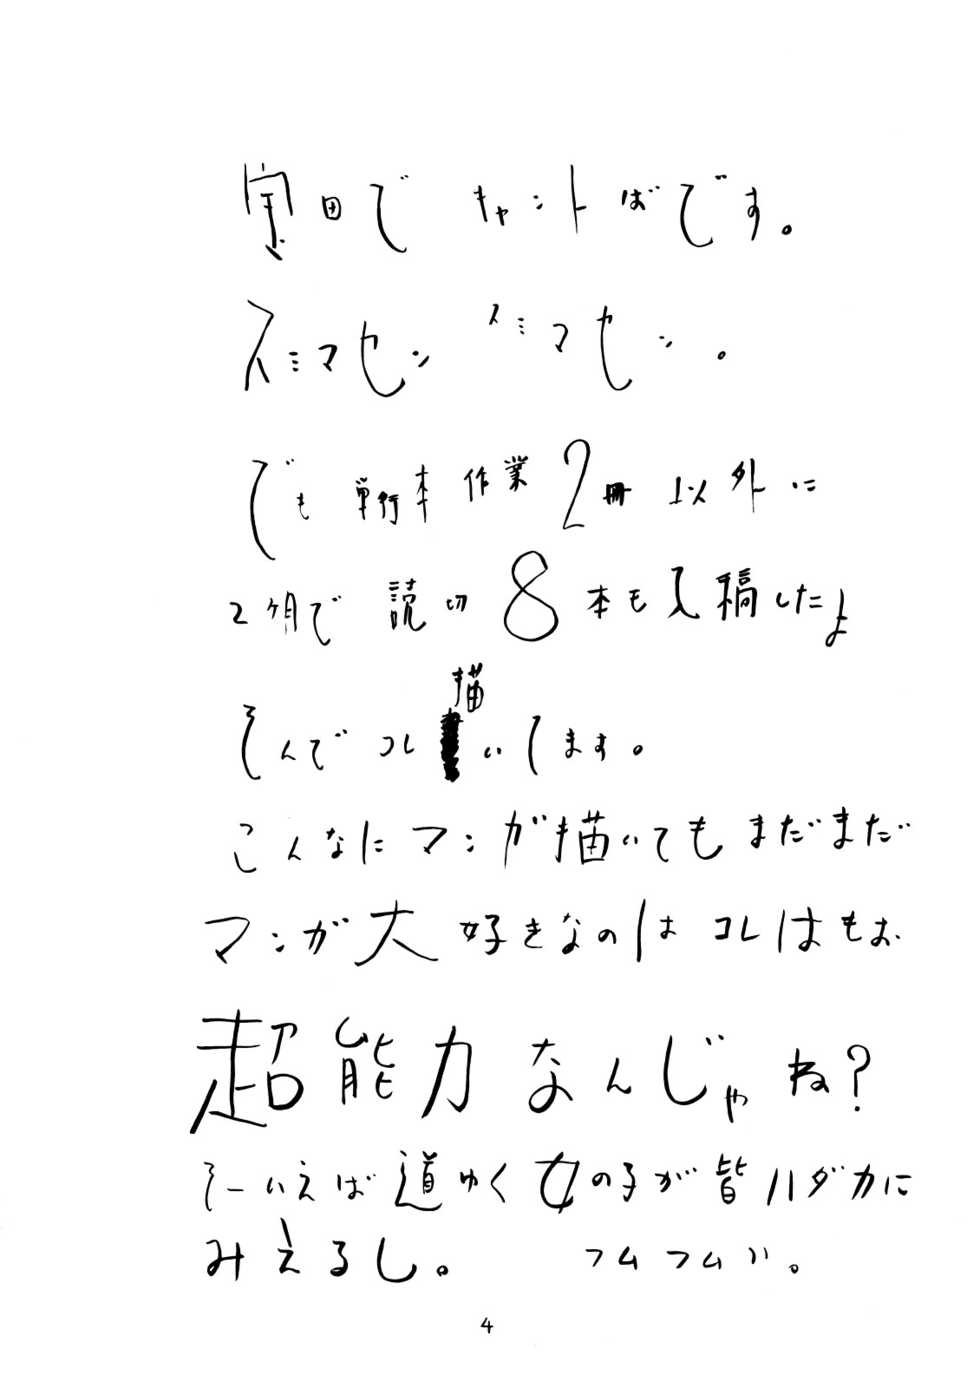 宝田で キャントばです。
スミマセン スミマセン。
でも単行本作業2冊以外に
2ヶ月で 読切 8本も入稿したよ
そんでコレ描いてます。
こんなにマンガ描いてもまだまだ
マンガ大好きなのはコレはもお
超能力なんじゃね?
そーいえば道ゆく女の子が皆ハダカに
みえるし。 フムフムハ。
4